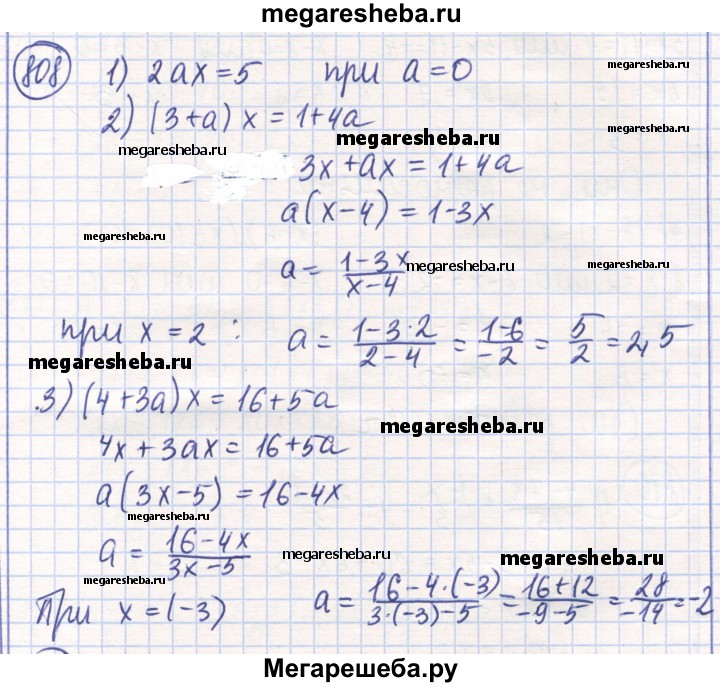 megaresheba.ru
808 1) 2ax = 5 при a = 0
2) (3+a) x = 1+4a
megaresheba.ru
megaresheba.ru
3x + ax = 1+4a
a(x-4) = 1-3x
megaresheba.ru
a = \frac{1-3x}{x-4} megaresheba.ru
при x = 2 : a = \frac{1-3·2}{2-4} = \frac{1-6}{-2} = \frac{5}{2} = 2,5
megaresheba.ru
3) (4+3a) x = 16+5a
megaresheba.ru
4x + 3ax = 16+5a
a(3x-5) = 16-4x
megaresheba.ru
a = \frac{16-4x}{3x-5} megaresheba.ru megaresheba.ru
megaresheba.ru
При x = (-3) a = \frac{16-4·(-3)}{3·(-3)-5} = \frac{16+12}{-9-5} = \frac{28}{-14} = -2
Мегарешеба.ру